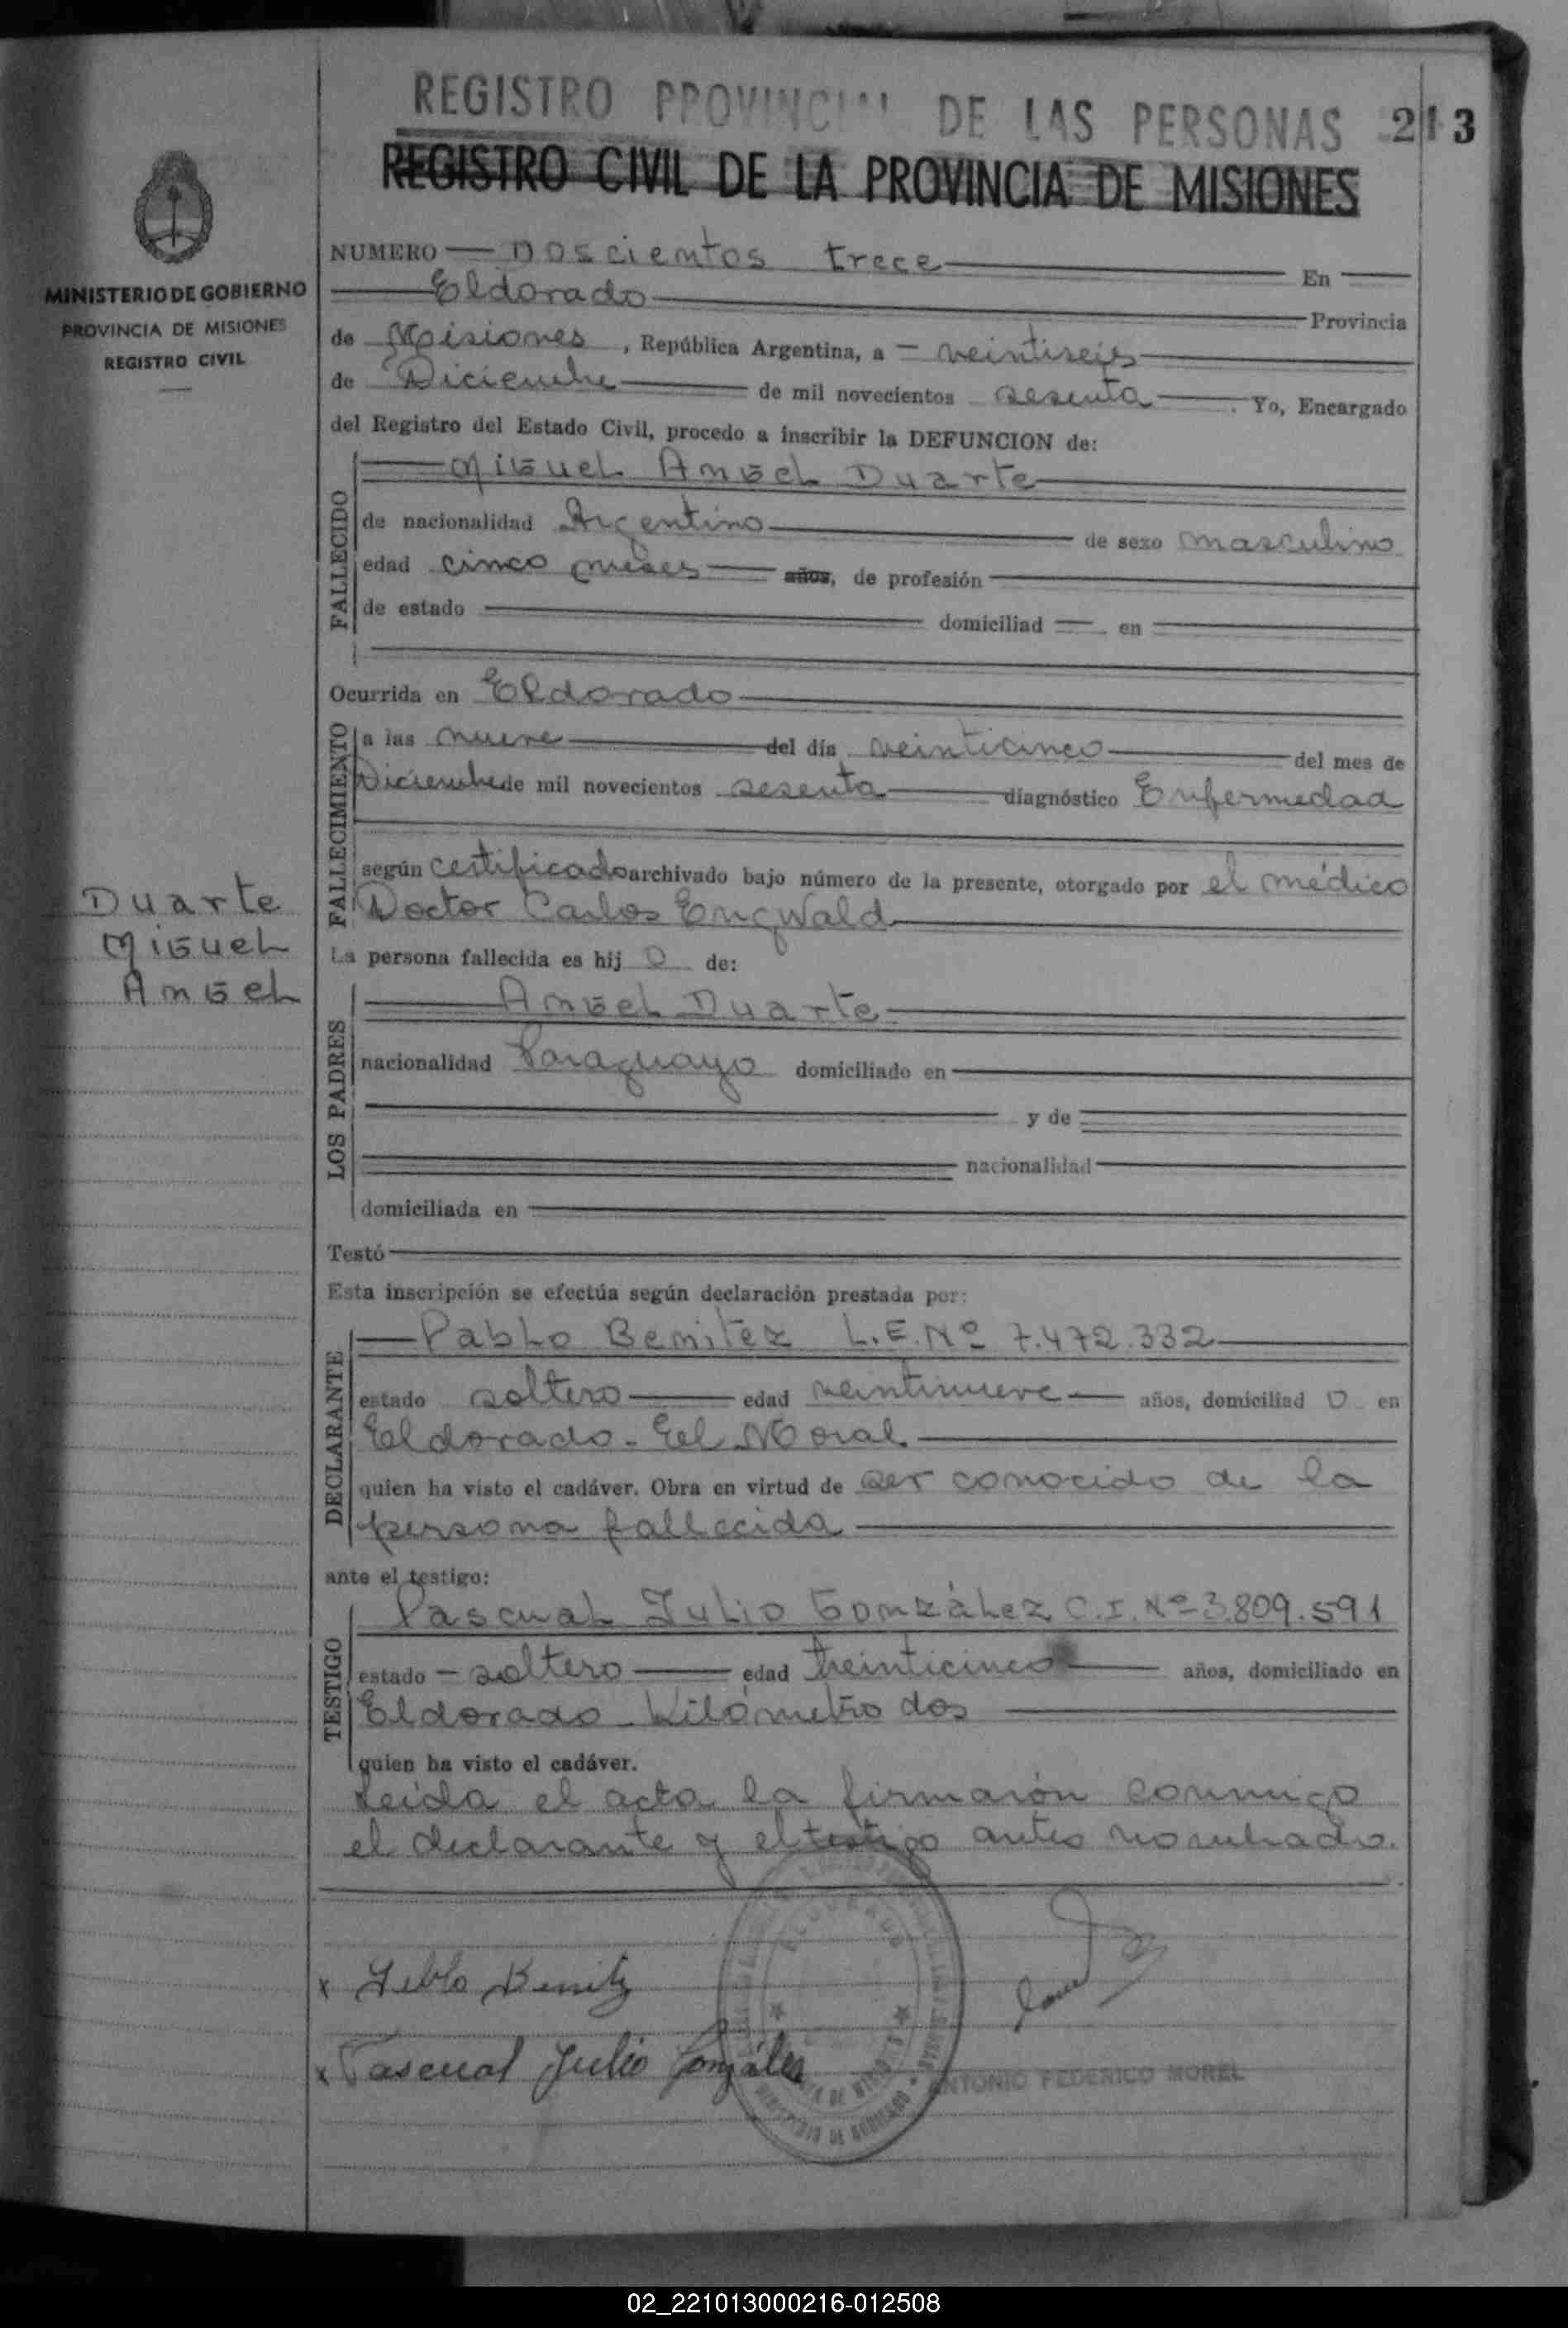 REGISTRO PROVINCIAL DE LAS PERSONAS 213
REGISTRO CIVIL DE LA PROVINCIA DE MISIONES
MINISTERIO DE GOBIERNO
PROVINCIA DE MISIONES
REGISTRO CIVIL
NUMERO Doscientos trece En
Eldorado Provincia
de Misiones, República Argentina, a veintiseis
de Diciembre de mil novecientos sesenta. Yo, Encargado
del Registro del Estado Civil, procedo a inscribir la DEFUNCION de:
FALLECIDO
Miguel Angel Duarte
de nacionalidad Argentino de sexo masculino
edad cinco meses años, de profesión
de estado domiciliad en
Ocurrida en Eldorado
FALLECIMIENTO
a las nueve del día veinticinco del mes de
Diciembre de mil novecientos sesenta diagnóstico Enfermedad
según certificado archivado bajo número de la presente, otorgado por el médico
Doctor Carlos Engwald
Duarte
Miguel
Angel
La persona fallecida es hij o de:
LOS PADRES
Angel Duarte
nacionalidad Paraguayo domiciliado en
y de
nacionalidad
domiciliada en
Testó
Esta inscripción se efectúa según declaración prestada por:
DECLARANTE
Pablo Benitez L.E. Nº 7.472.332
estado soltero edad veintinueve años, domiciliad o en
Eldorado - El Moral
quien ha visto el cadáver. Obra en virtud de ser conocido de la
persona fallecida
ante el testigo:
TESTIGO
Pascual Julio González C.I. Nº 3.809.591
estado soltero edad treinticinco años, domiciliado en
Eldorado - Kilómetro dos
quien ha visto el cadáver.
Leida el acta la firmarón conmigo
el declarante y el testigo antes nombrado.
ELDORADO
Pablo Benitz
Pascual Julio González
ANTONIO FEDERICO MOREL
MINISTERIO DE GOBIERNO
02_221013000216-012508